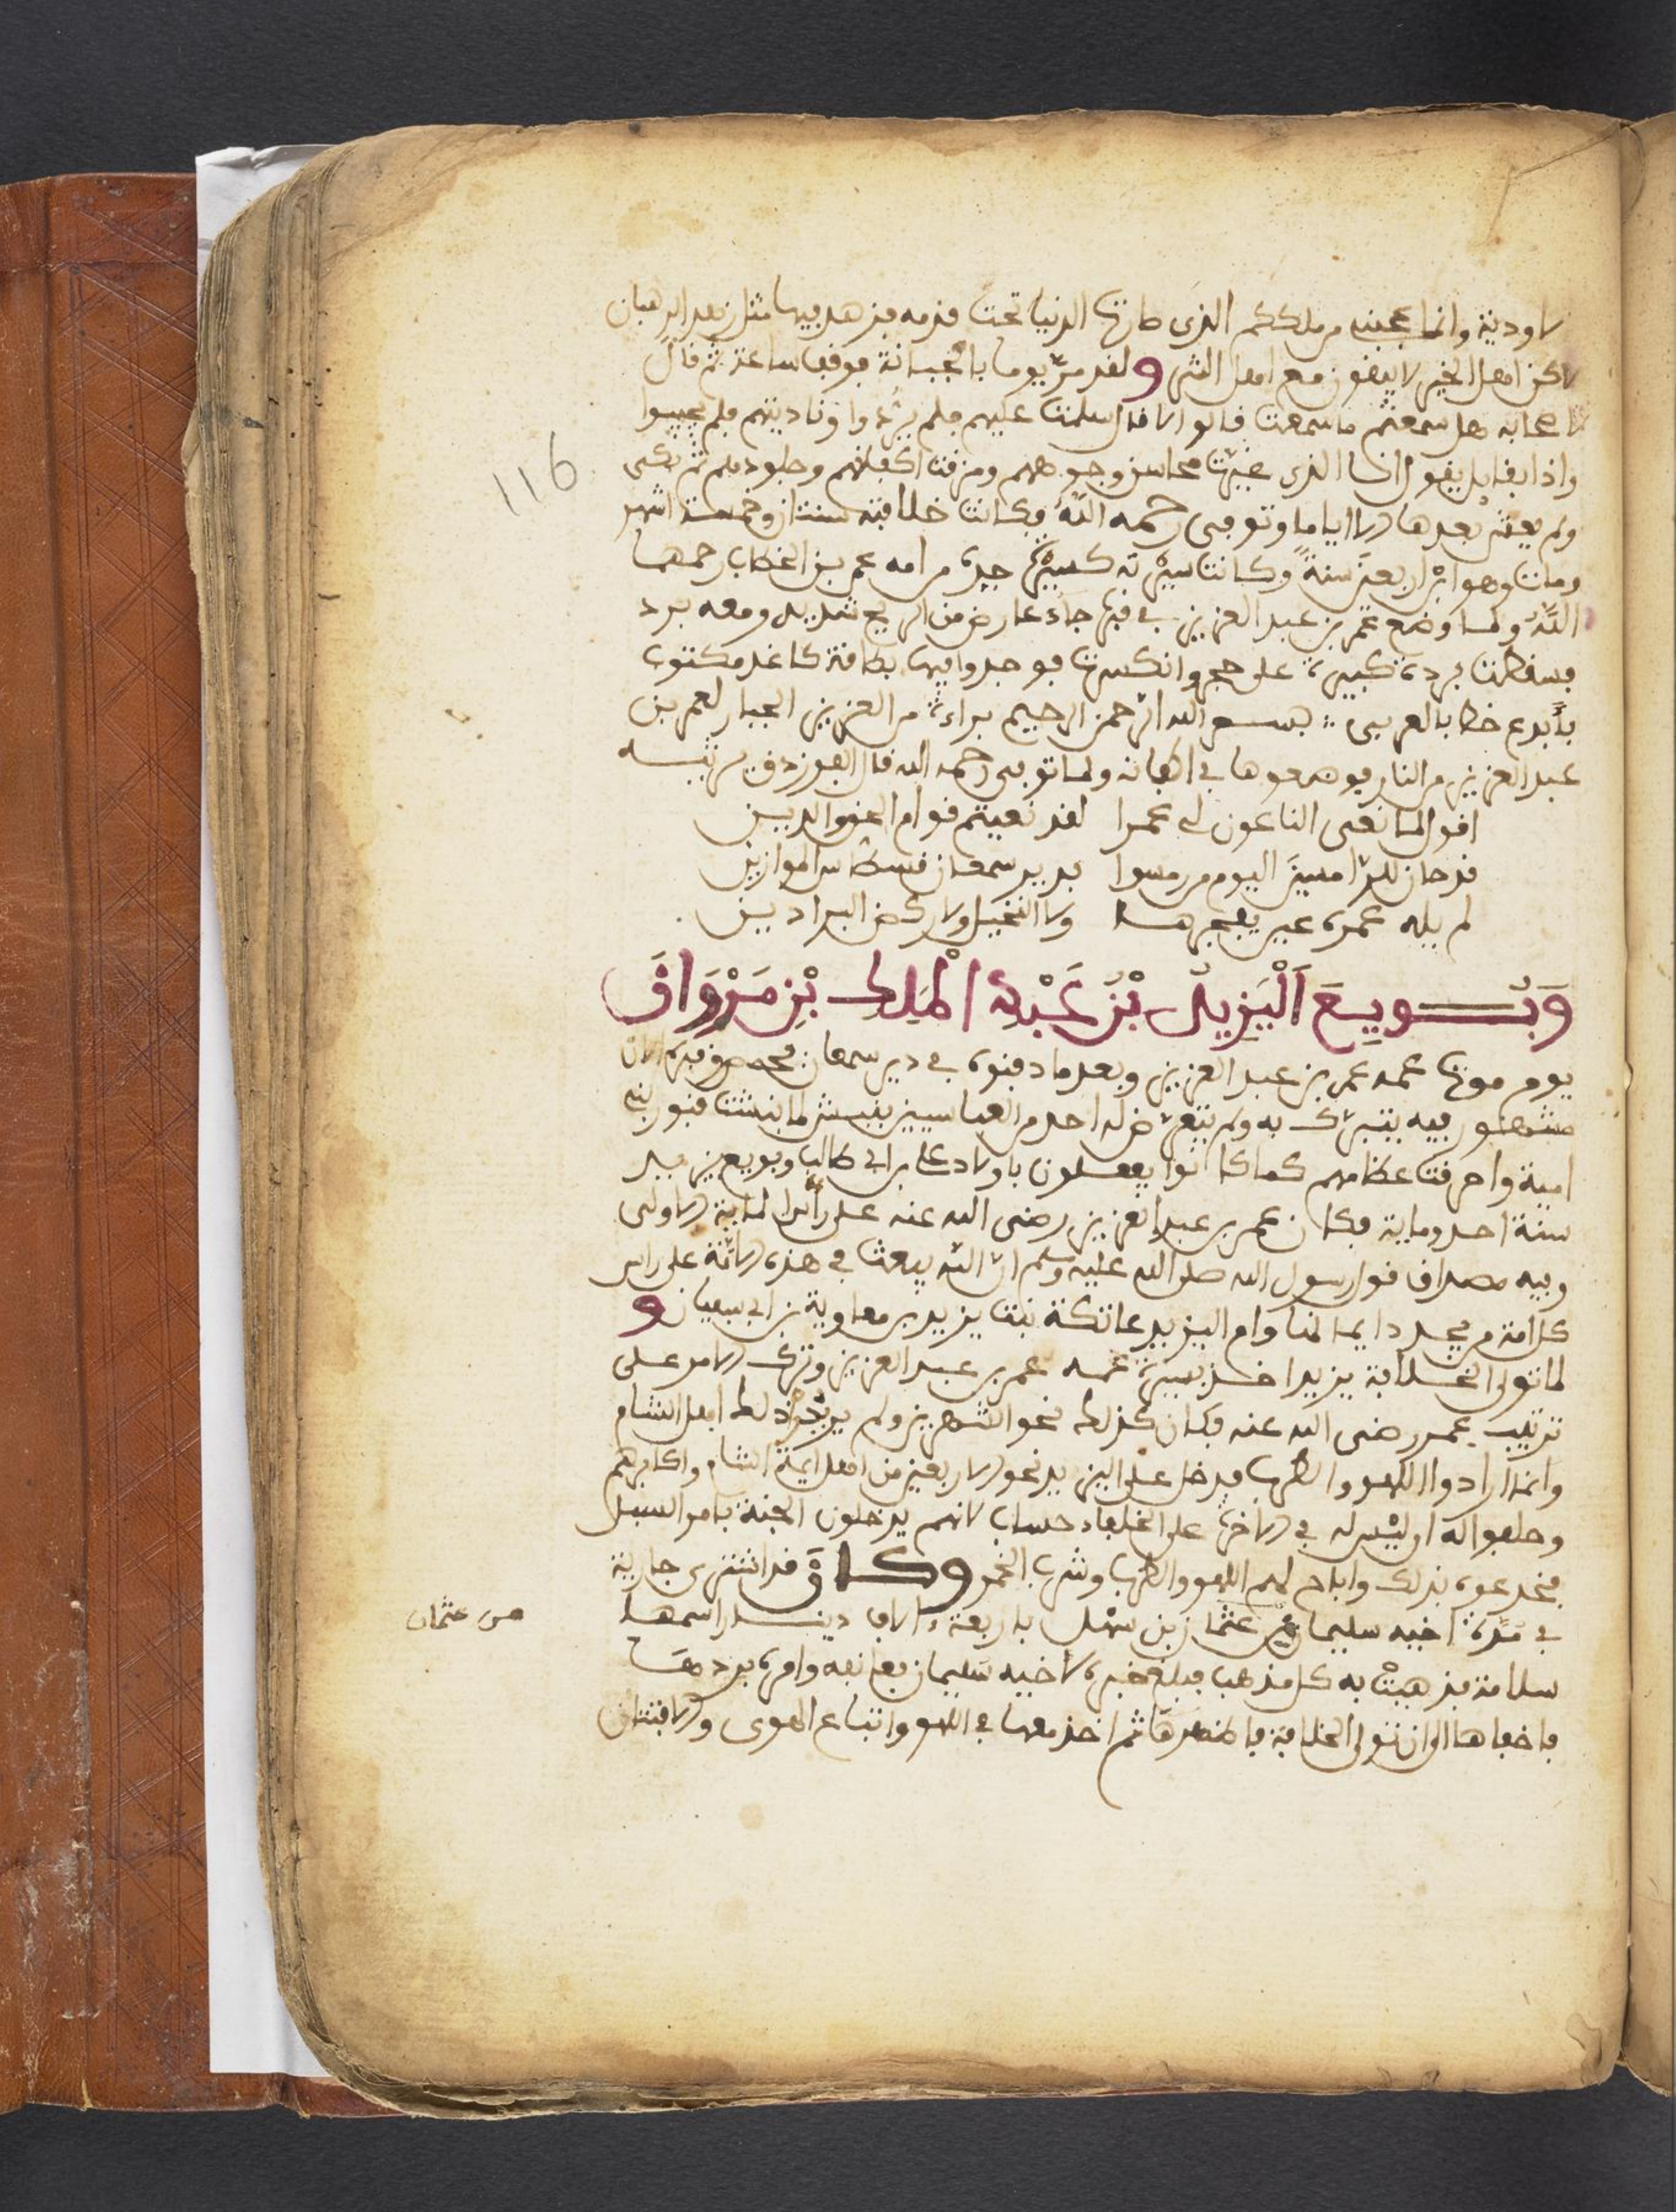 الاودية وانما عجبت من ملككم الذى صارت الدنيا تحت قدمه فزهد فيها مثل زهد الرهبان
لاكن اهل الخير لا يبقون مع اهل الشر ولقد مرّ يوما بالجبانة فوقف ساعة ثم قال
لاصحابه هل سمعتم ما سمعت قالوا لا قال سلمت عليهم فلم يردوا وناديتهم فلم يجيبوا
واذا بقايل يقول انا الذى غيرت محاسن وجوههم ومزقت اكفانهم وجلودهم ثم بكى
ولم يعش بعدها الا اياما وتوفى رحمه الله فكانت خلافته سنتان وخمسة اشهر
ومات وهو ابن اربعين سنة وكانت سيرته كسيرة جده من امه عمر بن الخطاب رحمهما
الله ولما وضع عمر بن عبد العزيز في قبره جاء عارض من الريح شديد ومعه برد
فسقطت بردة كبيرة على حجر وانكسرت فوجدوا فيها بطاقة كاغد مكتوب
بأبدع خط بالعربى بسم الله الرحمن الرحيم براءة من العزيز الجبار لعمر بن
عبد العزيز من النار فوضعوها في اكفانه ولما توفى رحمه الله قال الفرزدق يرثيه
اقول لما نعى الناعون لى عمرا لقد نعيتم قوام الحق والدين
قد حان للرامسين اليوم من رمسوا بدير سمعان قسطاس الموازين
لم يله عمره عين يفجرها ولا النخيل ولا ركض البراذين
وَبُويِعَ اَلْيَزِيد بْنُ عَبْدِ الْمَلِكِ بْنِ مَرْوَان
يوم موت عمه عمر بن عبد العزيز وبعد ما دفنوه في دير سمعان بحمص وقبره الان
مشهور فيه يتبرك به ولم يتعرض له احد من العباسيين بنبش لما نبشت قبور بنى
امية واحرقت عظامهم كما كانوا يفعلون باولاد على بن ابى طالب وبويع يزيد
سنة احد وماية فكان عمر بن عبد العزيز رضى الله عنه على رأس الماية الاولى
وفيه مصداق قول رسول الله صلى الله عليه وسلم ان الله يبعث في هذه الامة على راس
كل امة من يجدد دايما لنا وام اليزيد عاتكة بنت يزيد بن معاوية بن ابى سفيان و
لما تولى الخلافة يزيد اخذ بسيرة عمه عمر بن عبد العزيز وترك الامر على
ترتيب عمر رضى الله عنه فكان كذلك نحو الشهرين ولم يرد ذلك اهل الشام
وانما ارادوا اللهو والطرب فدخل على اليزيد نحو الاربعين من اهل ايمة الشام واكابرهم
وحلفوا له ان ليس له في الاخرة على الخلفاء حساب لانهم يدخلون الجنة بامر السبل
فخدعوه بذلك واباح لهم اللهو والطرب وشرب الخمر وكان قد اشترى جارية
في مدة اخيه سليمان من عثمان بن سهل باربعة الاف دينار اسمها
من عثمان
سلامة فذهبت به كل مذهب فبلغ خبره لاخيه سليمان فعانفه وامره بردها
فاخفاها الى ان تولى الخلافة فاظهرها ثم اخذ معها في اللهو واتباع الهوى والافتتان
116